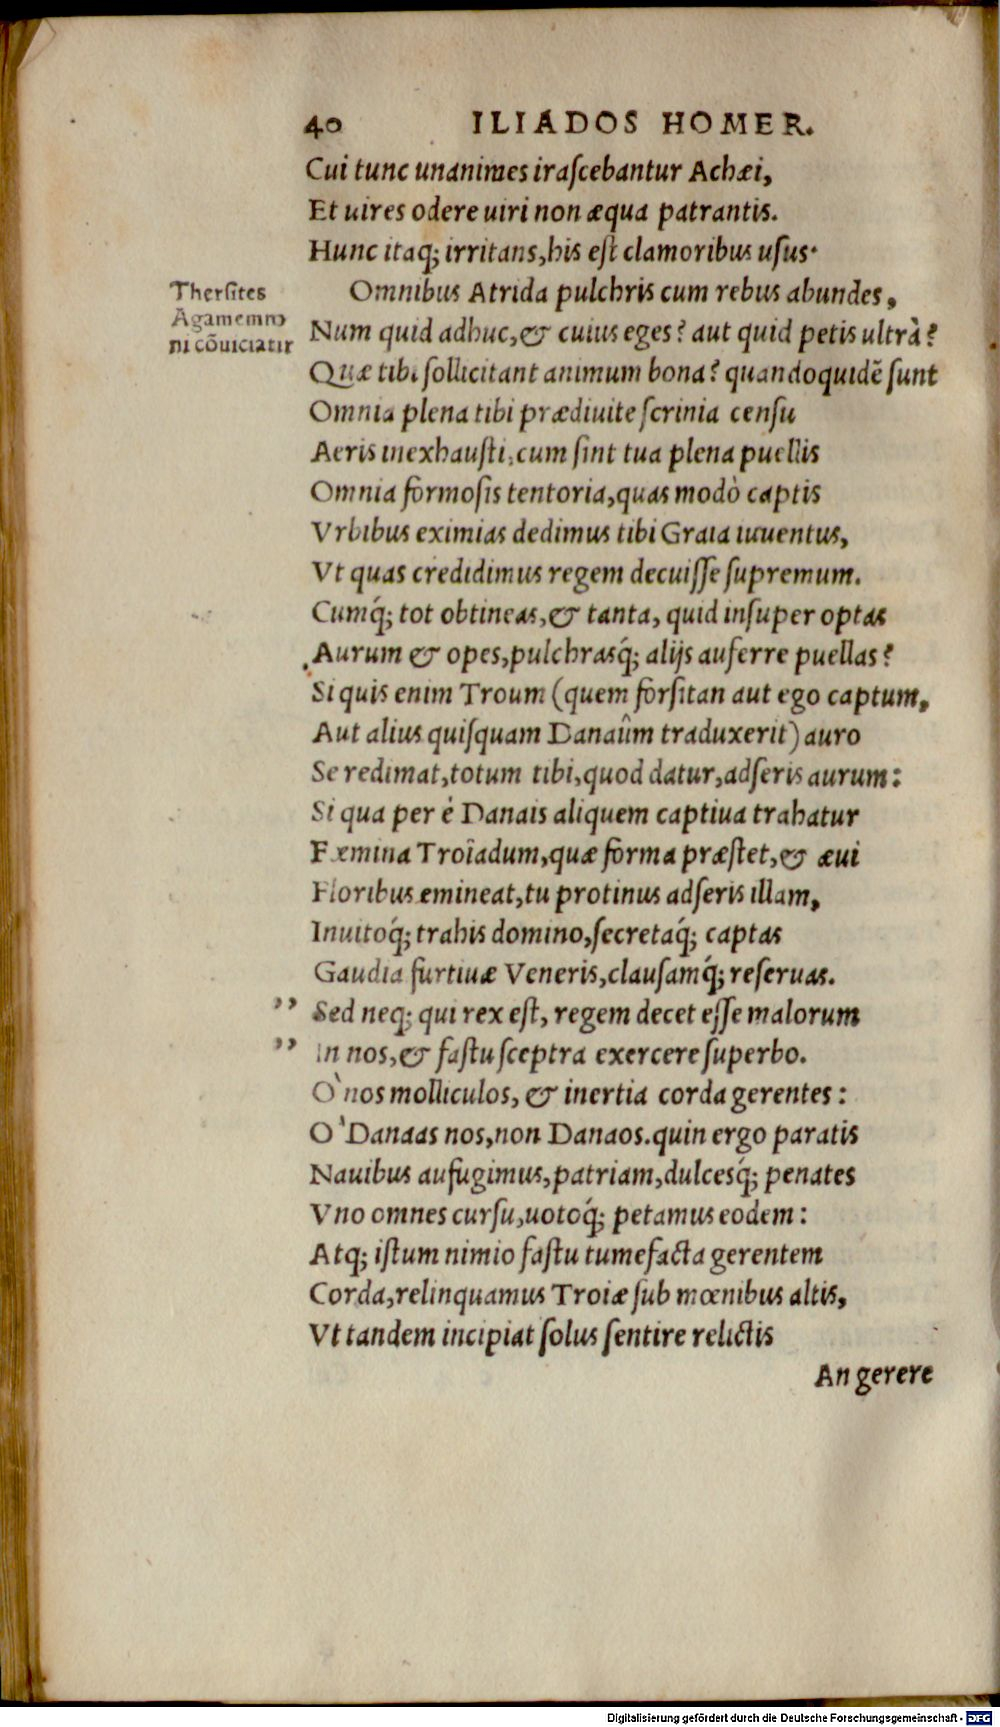 40 ILIADOS HOMER.
Cui tunc unanimes irascebantur Achæi,
Et uires odere uiri non æqua patrantis.
Hunc itaq; irritans, his est clamoribus usus.
Omnibus Atrida pulchris cum rebus abundes,
Thersites
Agamemno
ni cõuiciatur
Num quid adhuc, & cuius eges? aut quid petis ultrà?
Quæ tibi sollicitant animum bona? quandoquidẽ sunt
Omnia plena tibi prædiuite scrinia censu
Aeris inexhausti, cum sint tua plena puellis
Omnia formosis tentoria, quas modò captis
Vrbibus eximias dedimus tibi Graia iuuentus,
Vt quas credidimus regem decuisse supremum.
Cumq́; tot obtineas, & tanta, quid insuper optas
Aurum & opes, pulchrasq́; alijs auferre puellas?
Si quis enim Troum (quem forsitan aut ego captum,
Aut alius quisquam Danaûm traduxerit) auro
Se redimat, totum tibi, quod datur, adseris aurum:
Si qua per é Danais aliquem captiua trahatur
Fæmina Troiadum, quæ forma præstet, & æui
Floribus emineat, tu protinus adseris illam,
Inuitoq́; trahis domino, secretaq́; captas
Gaudia furtiuæ Veneris, clausamq́; reseruas.
” Sed neq; qui rex est, regem decet esse malorum
” In nos, & fastu sceptra exercere superbo.
O` nos molliculos, & inertia corda gerentes:
O` Danaas nos, non Danaos. quin ergo paratis
Nauibus aufugimus, patriam, dulcesq́; penates
Vno omnes cursu, uotoq́; petamus eodem:
Atq; istum nimio fastu tumefacta gerentem
Corda, relinquamus Troiæ sub mœnibus altis,
Vt tandem incipiat solus sentire relictis
An gerere
Digitalisierung gefördert durch die Deutsche Forschungsgemeinschaft - DFG